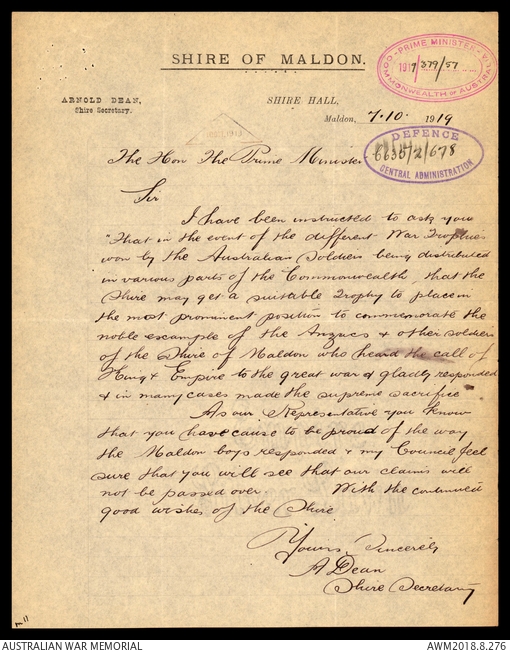 SHIRE OF MALDON.
PRIME MINISTER
1917/379/57
COMMONWEALTH OF AUSTRALIA
ARNOLD DEAN,
Shire Secretary.
SHIRE HALL,
Maldon, 7.10. 1919
DEFENCE
6635/2/678
CENTRAL ADMINISTRATION
The Hon The Prime Minister
Sir
I have been instructed to ask you
"That in the event of the different War Trophies
won by the Australian Soldiers being distributed
in various parts of the Commonwealth, that the
Shire may get a suitable Trophy to place in
the most prominent position to commemorate the
noble example of the Anzacs & other soldiers
of the Shire of Maldon who heard the call of
King & Empire to the great war & gladly responded
& in many cases made the supreme sacrifice
As our Representative you know
that you have cause to be proud of the way
the Maldon boys responded & my Council feel
sure that you will see that our claims will
not be passed over With the continued
good wishes of the Shire
Yours Sincerely
A Dean
Shire Secretary
AUSTRALIAN WAR MEMORIAL
AWM2018.8.276